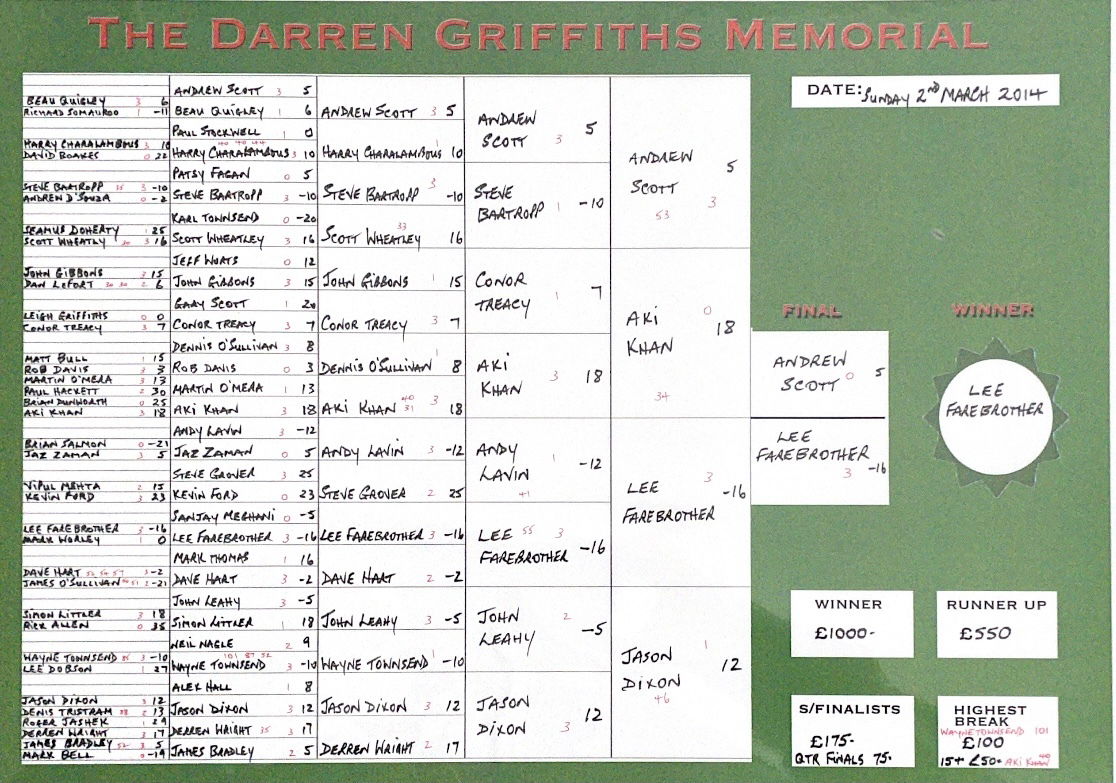 THE DARREN GRIFFITHS MEMORIAL
DATE: SUNDAY 2ND MARCH 2014
BEAU QUIGLEY 3 6
RICHARD SOMAUROO 1 -11
HARRY CHARALAMBOUS 3 10
DAVID BOAKES 0 22
STEVE BARTROPP 35 3 -10
ANDREN D'SOUZA 0 -2
SEAMUS DOHERTY 1 25
SCOTT WHEATLY 30 3 16
JOHN GIBBONS 3 15
DAN LEFORT 30 30 2 6
LEIGH GRIFFITHS 0 0
CONOR TREACY 3 7
MATT BULL 1 15
ROB DAVIS 3 3
MARTIN O'MERA 3 13
PAUL HACKETT 2 30
BRIAN DUNWORTH 0 25
AKI KHAN 3 18
BRIAN SALMON 0 -21
JAZ ZAMAN 3 5
VIPUL MEHTA 2 15
KEVIN FORD 3 23
LEE FAREBROTHER 3 -16
MARK WORLEY 1 0
DAVE HART 3 -2
JAMES O'SULLIVAN 2 -21
SIMON LITTLER 3 18
RICK ALLEN 0 35
WAYNE TOWNSEND 3 -10
LEE DOBSON 1 27
JASON DIXON 3 12
DENIS TRISTRAM 2 13
ROGER JASHEK 1 29
DERREN WRIGHT 3 17
JAMES BRADLEY 52 3 5
MARK BELL 0 -19
ANDREW SCOTT 3 5
BEAU QUIGLEY 1 6
PAUL STOCKWELL 1 0
40 40 44
HARRY CHARALAMBOUS 3 10
PATSY FAGAN 0 5
STEVE BARTROPP 3 -10
KARL TOWNSEND 0 -20
SCOTT WHEATLEY 3 16
JEFF WORTS 0 12
JOHN GIBBONS 3 15
GARY SCOTT 1 20
CONOR TREACY 3 7
DENNIS O'SULLIVAN 3 8
ROB DAVIS 0 3
MARTIN O'MERA 1 13
AKI KHAN 3 18
ANDY LAVIN 3 -12
JAZ ZAMAN 0 5
STEVE GROVER 3 25
KEVIN FORD 0 23
SANJAY MEGHANI 0 -5
LEE FAREBROTHER 3 -16
MARK THOMAS 1 16
DAVE HART 3 -2
JOHN LEAHY 3 -5
SIMON LITTLER 1 18
NEIL NAGLE 2 9
101 87 52
WAYNE TOWNSEND 3 -10
ALEX HALL 1 8
JASON DIXON 3 12
DERREN WRIGHT 35 3 17
JAMES BRADLEY 2 5
ANDREW SCOTT 3 5
HARRY CHARALAMBOUS 1 10
STEVE BARTROPP 3 -10
33
SCOTT WHEATLEY 16
JOHN GIBBONS 1 15
CONOR TREACY 3 7
DENNIS O'SULLIVAN 1 8
AKI KHAN 40 31 3 18
ANDY LAVIN 3 -12
STEVE GROVER 2 25
LEE FAREBROTHER 3 -16
DAVE HART 2 -2
JOHN LEAHY 3 -5
WAYNE TOWNSEND 1 -10
JASON DIXON 3 12
DERREN WRIGHT 2 17
ANDREW 5
SCOTT 3
STEVE
BARTROPP 1 -10
CONOR
TREACY 1 7
AKI
KHAN 3 18
ANDY 1
LAVIN -12
41
LEE 55 3
FAREBROTHER -16
JOHN 2
LEAHY -5
JASON 12
DIXON 3
ANDREW 5
SCOTT 3
53
AKI 0 18
KHAN
34
LEE 3 -16
FAREBROTHER
JASON 1 12
DIXON
46
FINAL
ANDREW
SCOTT 0 5
LEE
FAREBROTHER
3 -16
WINNER
LEE
FAREBROTHER
WINNER
£1000-
RUNNER UP
£550
S/FINALISTS
£175-
QTR FINALS 75-
HIGHEST
BREAK
WAYNE TOWNSEND 101
£100
40
15+ £50- AKI KHAN